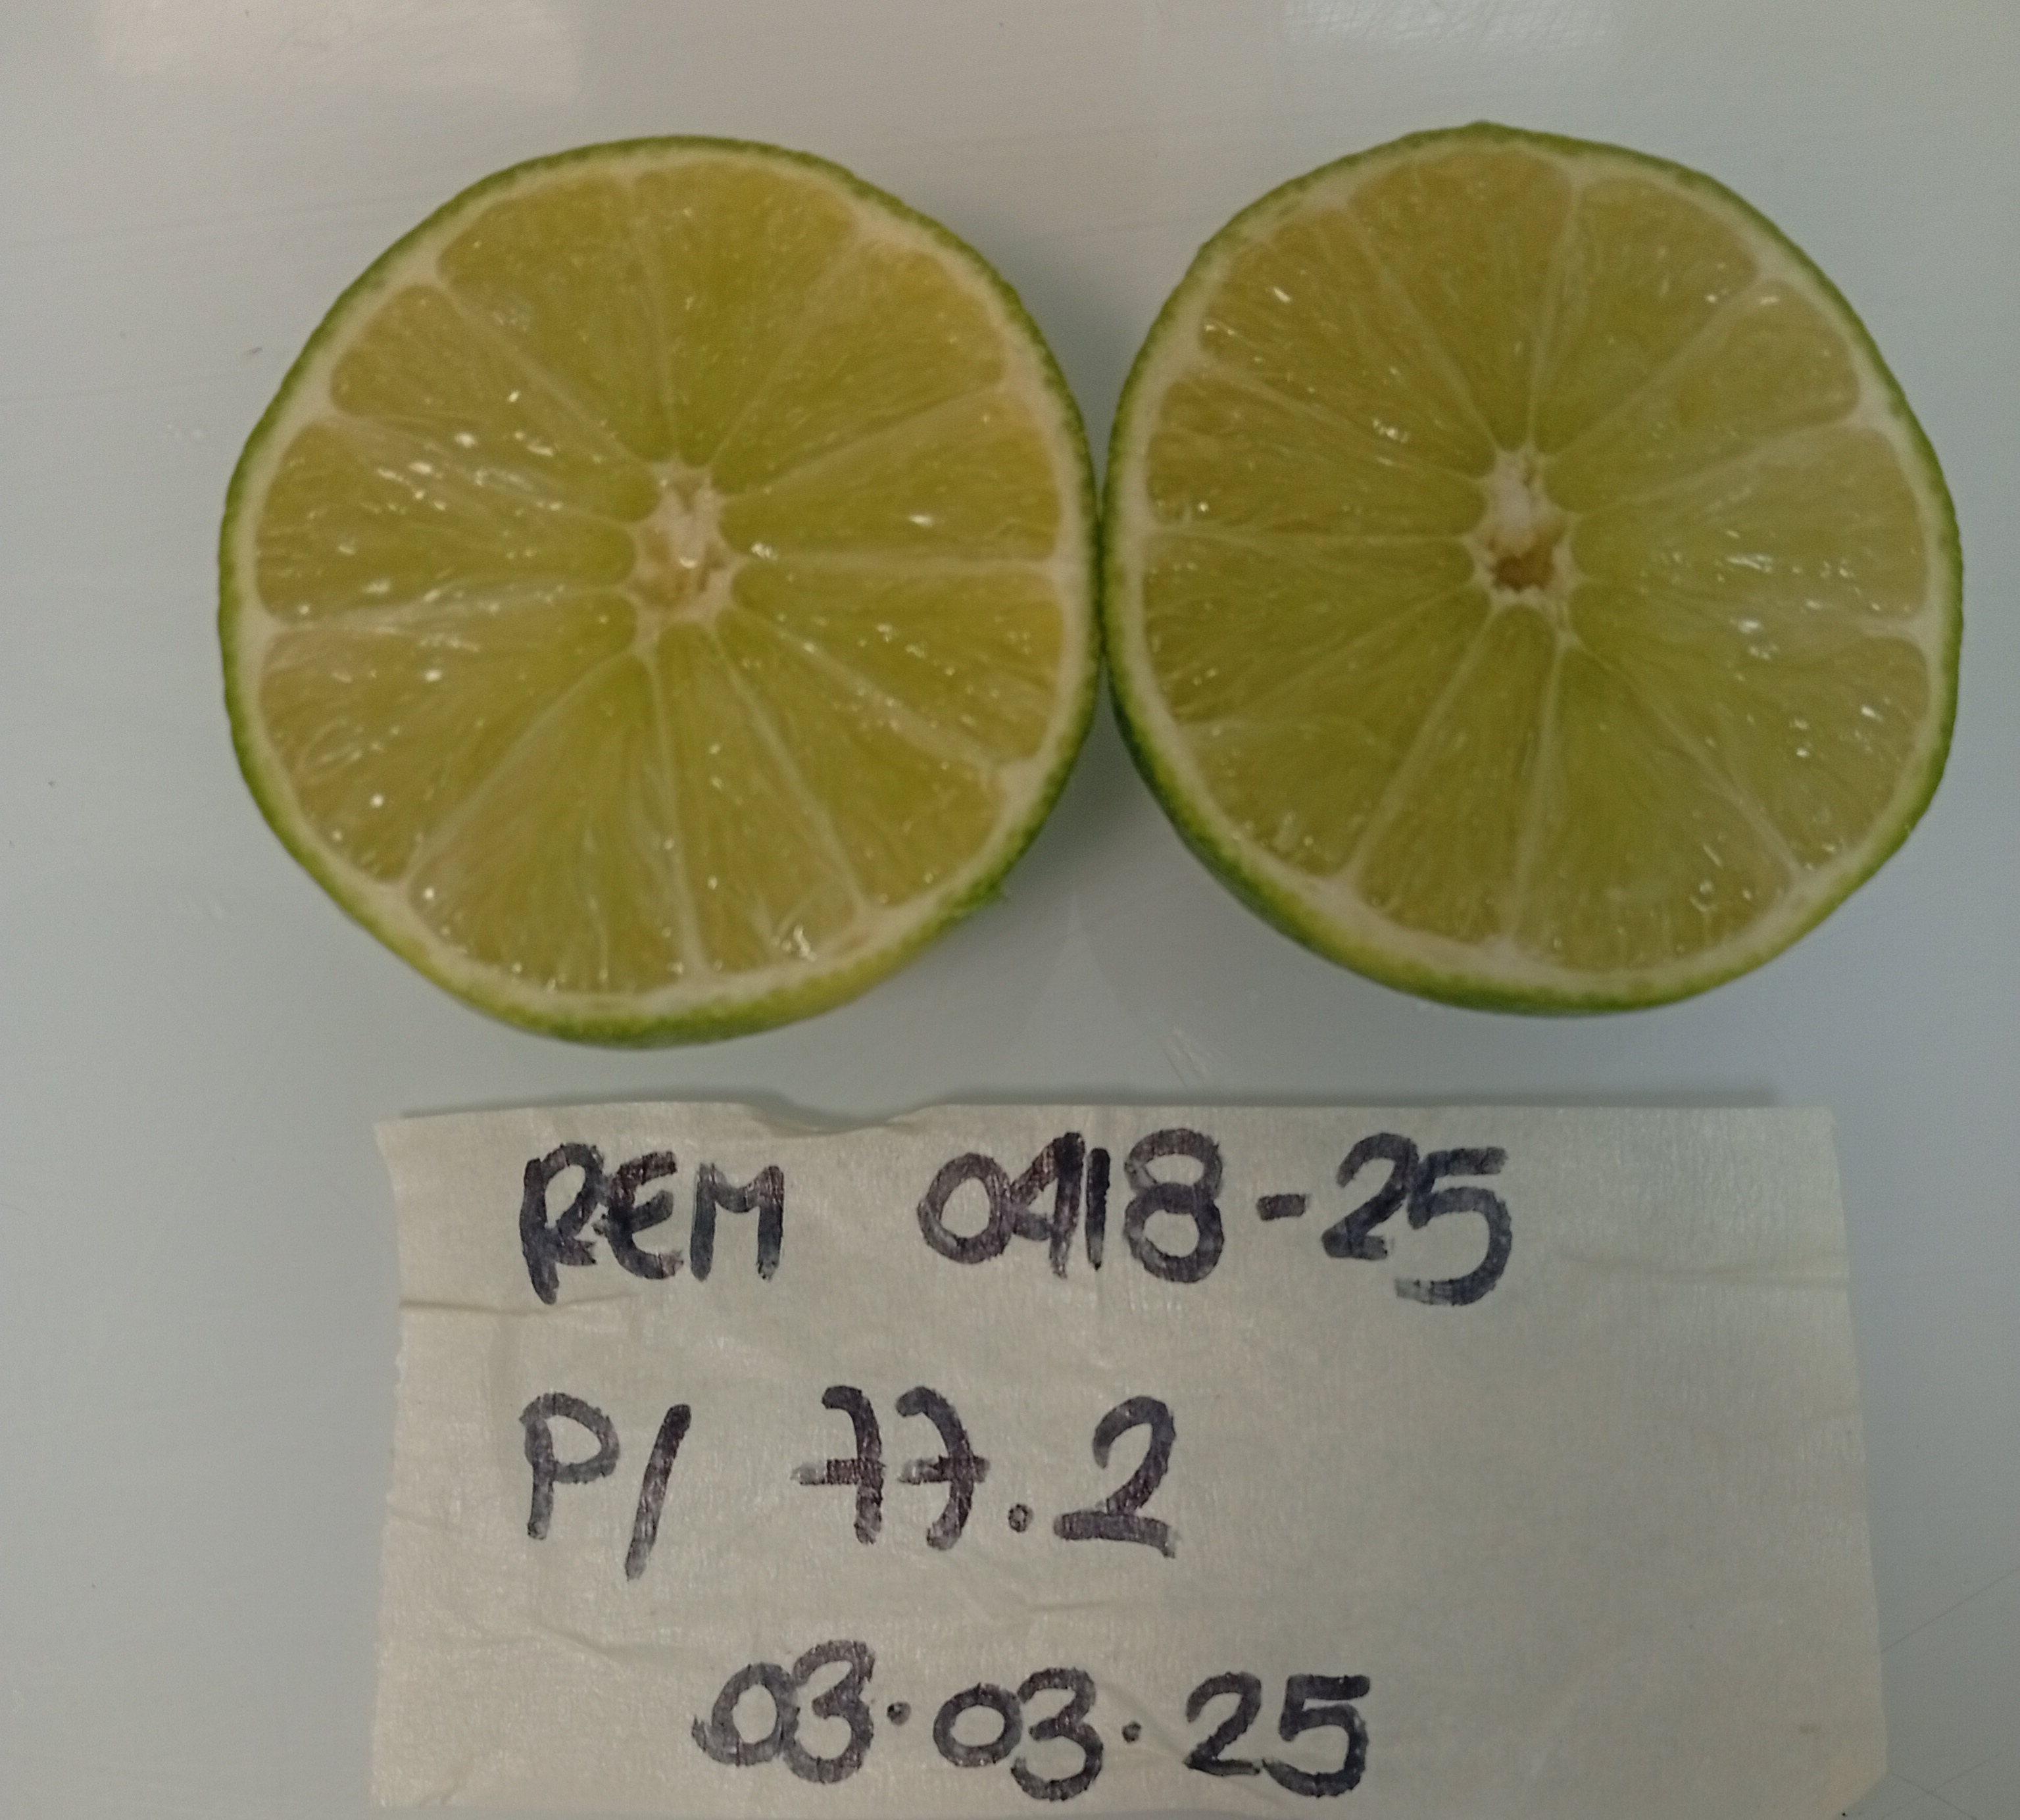 REM 0418-25
P/ 77.2
03.03.25